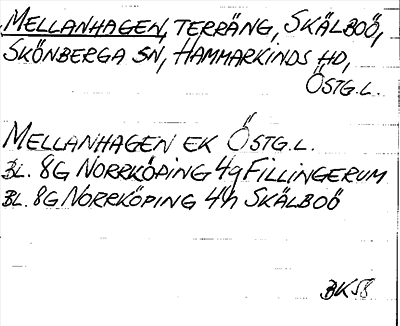 MELLANHAGEN, TERRÄNG, SKÄLBOÖ,
SKÖNBERGA SN, HAMMARKINDS HD,
ÖSTG.L.
MELLANHAGEN EK ÖSTG.L.
BL. 8G NORRKÖPING 4g FILLINGERUM
BL. 8G NORRKÖPING 4h SKÄLBOÖ
BK58